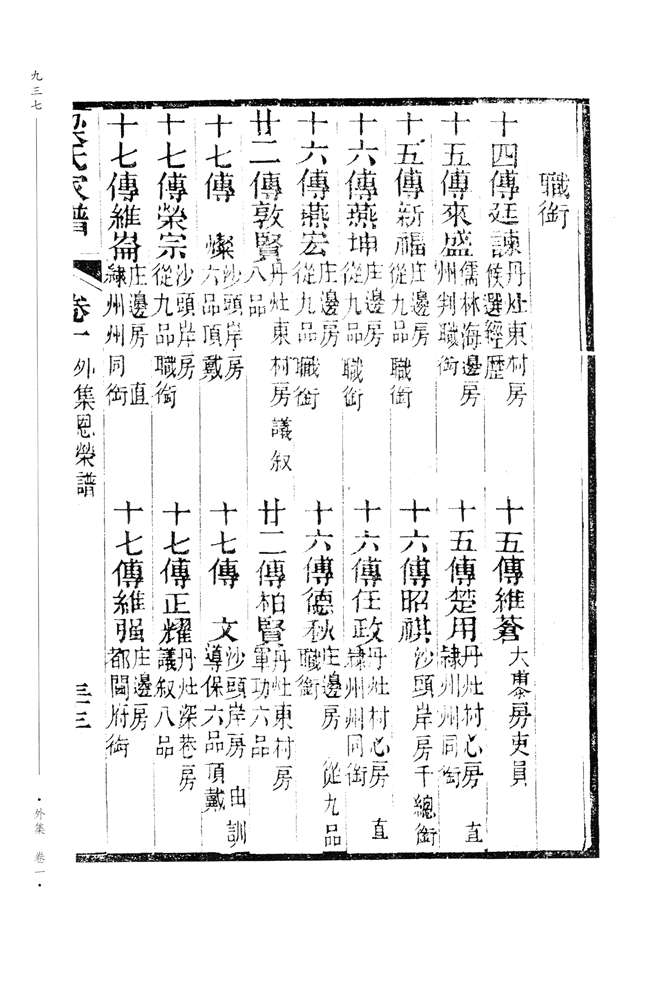 職銜
十四傳廷諫 丹灶東村房 候選經歷 十五傳維蒼 大桼房吏員
十五傳來盛 儒林海邊房 州判職銜 十五傳楚用 丹灶村心房 直隸州州同銜
十五傳新福 庄邊房 從九品職銜 十六傳昭祺 沙頭岸房千總銜
十六傳燕坤 庄邊房 從九品職銜 十六傳任政 丹灶村心房 直隸州州同銜
十六傳燕宏 庄邊房 從九品職銜 十六傳德秋 庄邊房 從九品職銜
廿二傳敦賢 丹灶東村房 議叙八品 廿二傳柏賢 丹灶東村房 軍功六品
十七傳 燦 沙頭岸房 六品頂戴 十七傳 文 沙頭岸房 由訓導保六品頂戴
十七傳榮宗 沙頭岸房 從九品職銜 十七傳正耀 丹灶深巷房 議叙八品
十七傳維崙 庄邊房 直隸州州同銜 十七傳維强 庄邊房 都閫府銜
氏家譜 卷一 外集恩榮譜 三三
九三七
·外集 卷一·